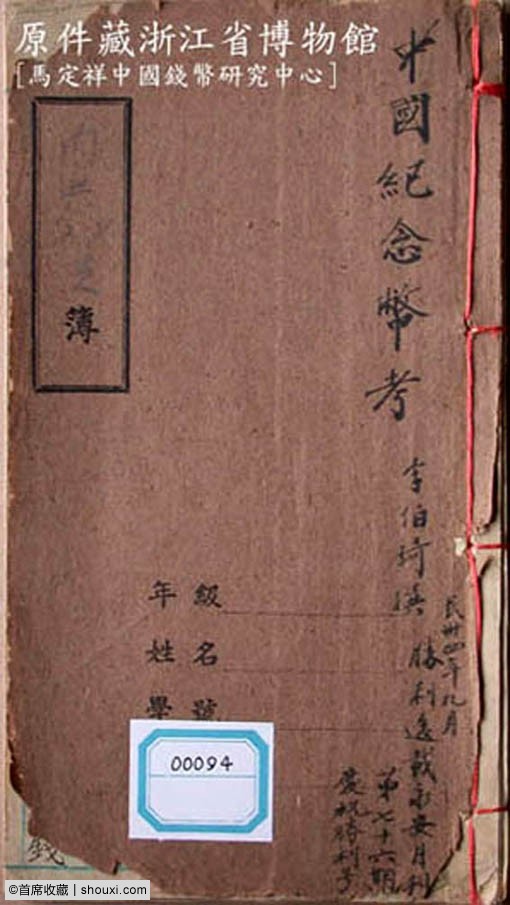 原件藏浙江省博物館
[馬定祥中國錢幣研究中心]
中國紀念幣考
李伯琦撰
民卅四年九月
勝利後載永安月刊
第七十六期
慶祝勝利号
簿
年級
姓名
學號
00094
錢
©首席收藏 | shouxi.com